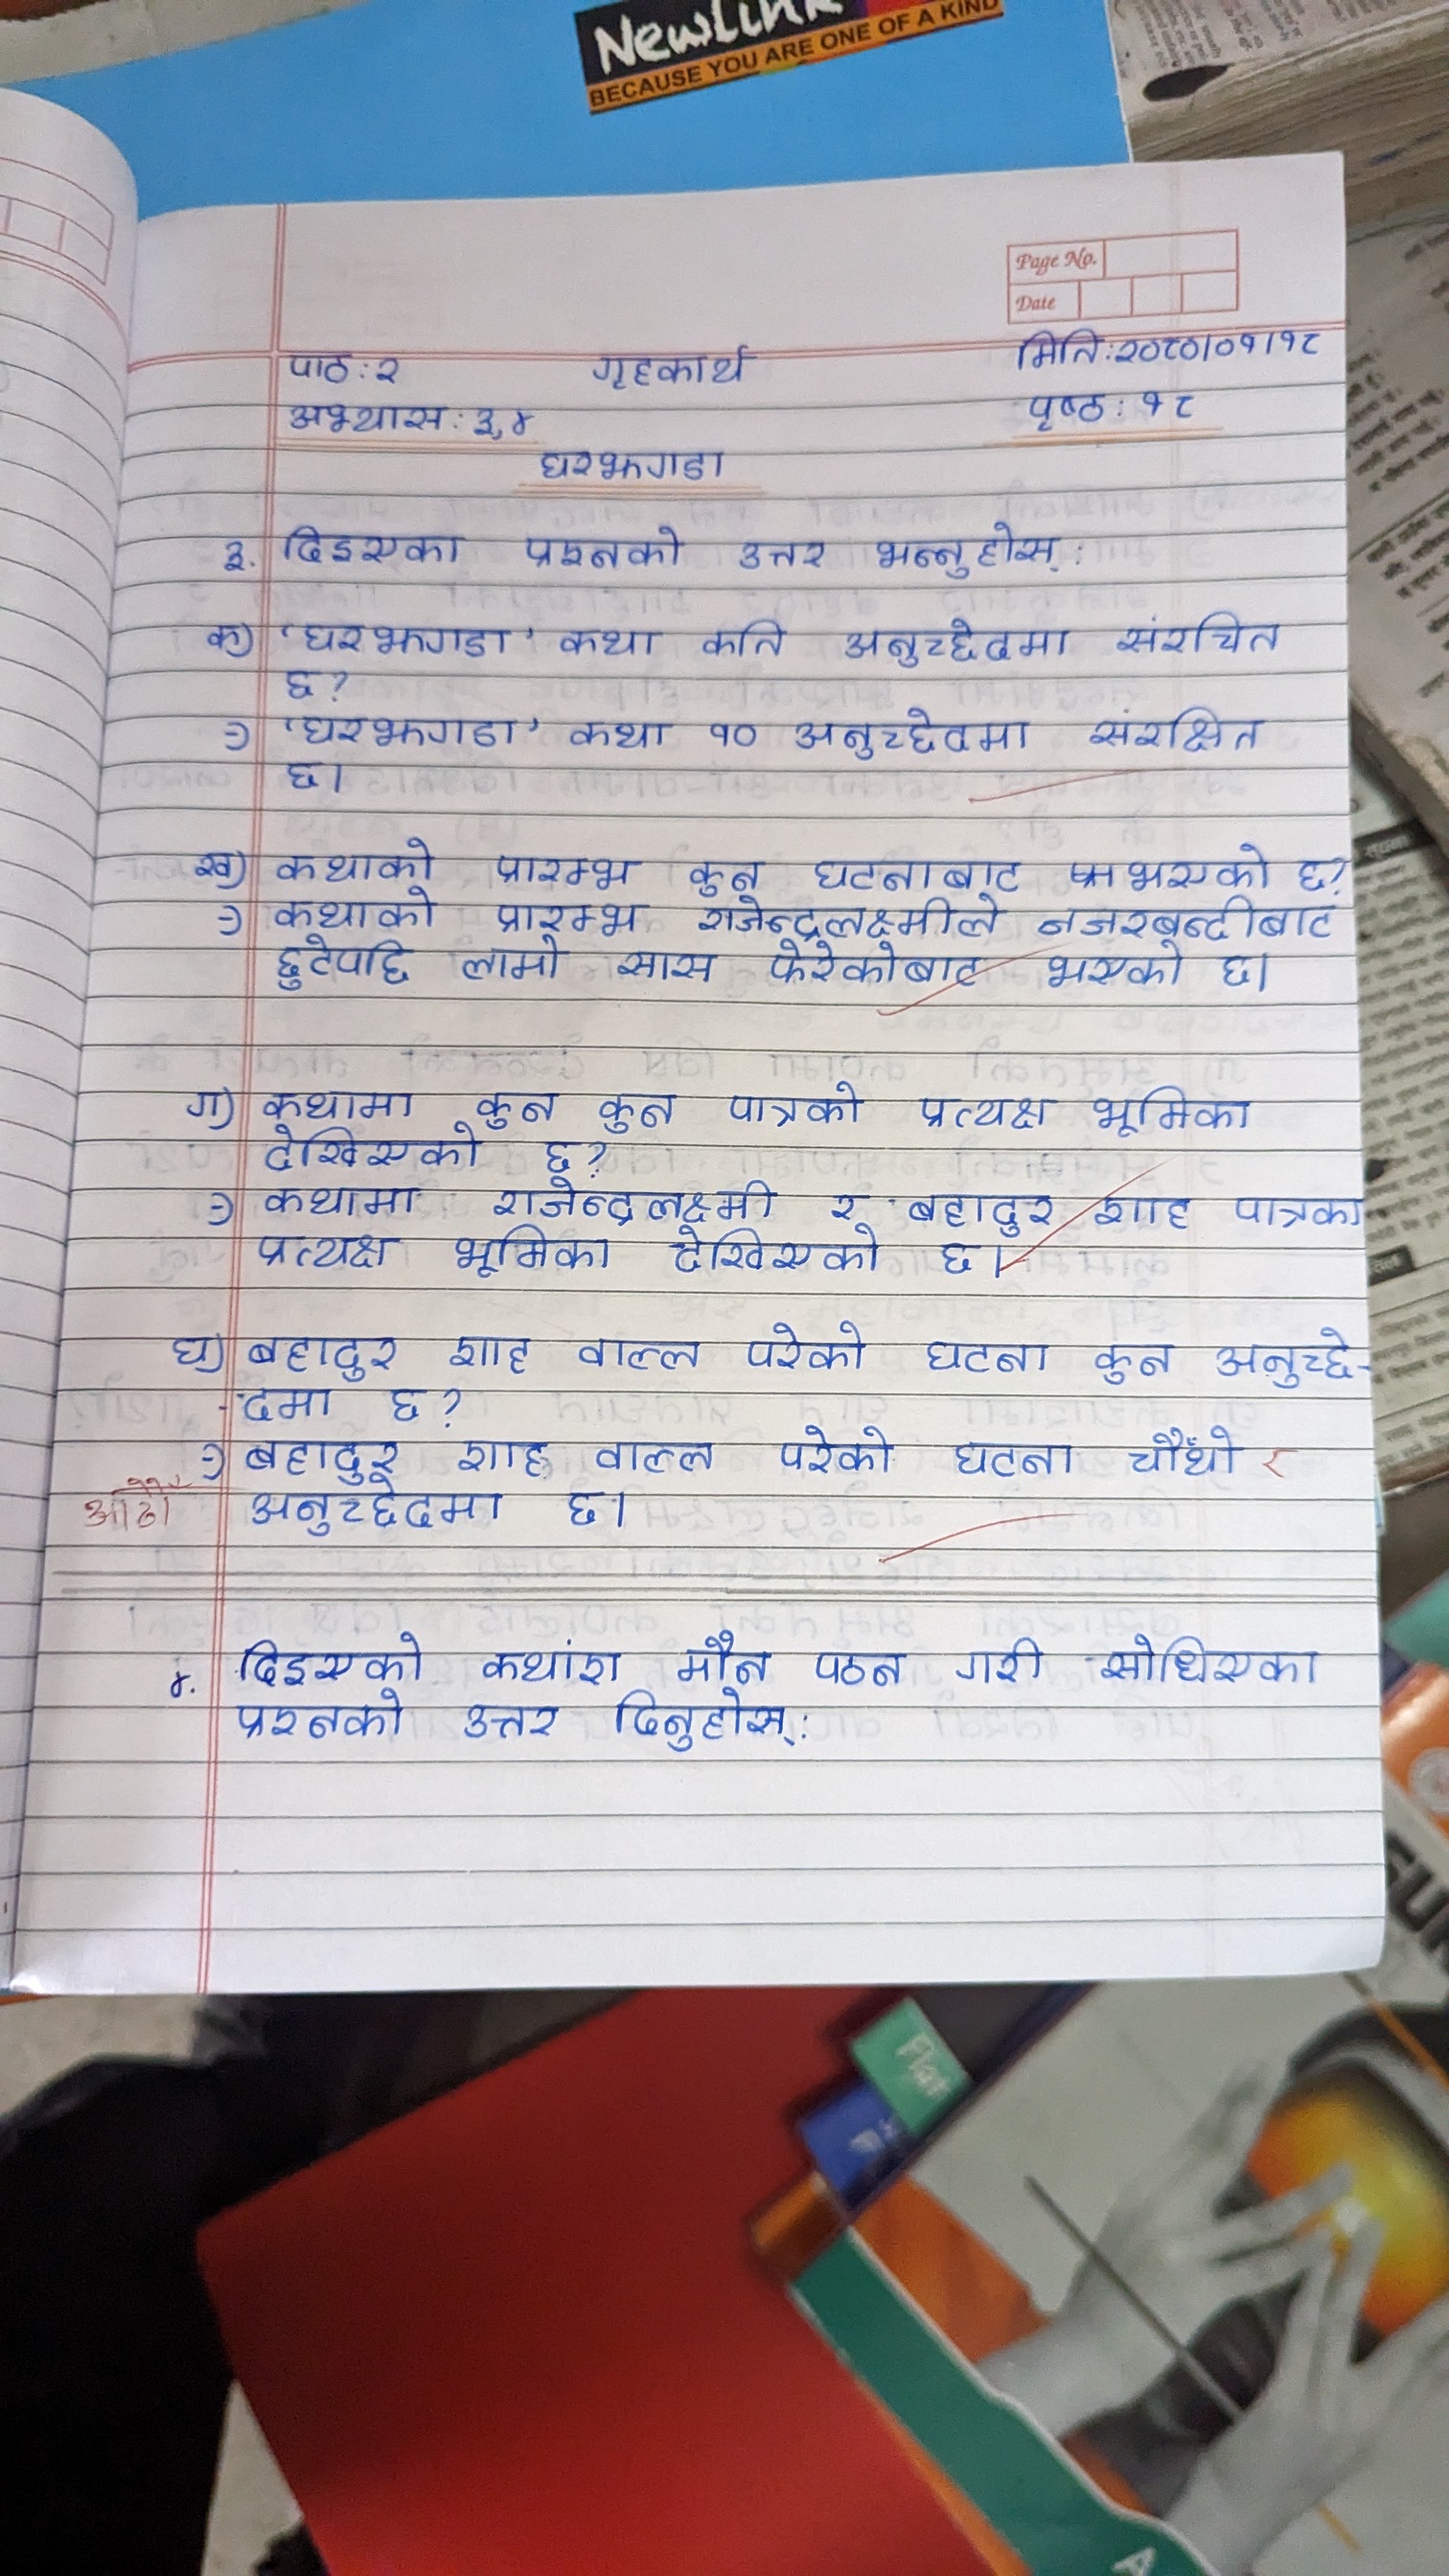 NewLink
BECAUSE YOU ARE ONE OF A KIND
Page No.
Date
पाठ: २ गृहकार्य मिति: २०८०।०१।१८
अभ्यास: ३,४ पृष्ठ: १८
घरझगडा
३. दिइएका प्रश्नको उत्तर भन्नुहोस्:
क) 'घरझगडा' कथा कति अनुच्छेदमा संरचित
छ?
⇒ 'घरझगडा' कथा १० अनुच्छेदमा संरक्षित
छ।
ख) कथाको प्रारम्भ कुन घटनाबाट भएको छ?
⇒ कथाको प्रारम्भ राजेन्द्रलक्ष्मीले नजरबन्दीबाट
छुटेपछि लामो सास फेरेकोबाट भएको छ।
ग) कथामा कुन कुन पात्रको प्रत्यक्ष भूमिका
देखिएको छ?
⇒ कथामा राजेन्द्रलक्ष्मी र बहादुर शाह पात्रका
प्रत्यक्ष भूमिका देखिएको छ।
घ) बहादुर शाह वाल्ल परेको घटना कुन अनुच्छे-
-दमा छ?
⇒ बहादुर शाह वाल्ल परेको घटना चौँथो र
आठौँ अनुच्छेदमा छ।
४. दिइएको कथांश मौन पठन गरी सोधिएका
प्रश्नको उत्तर दिनुहोस्:
Flat